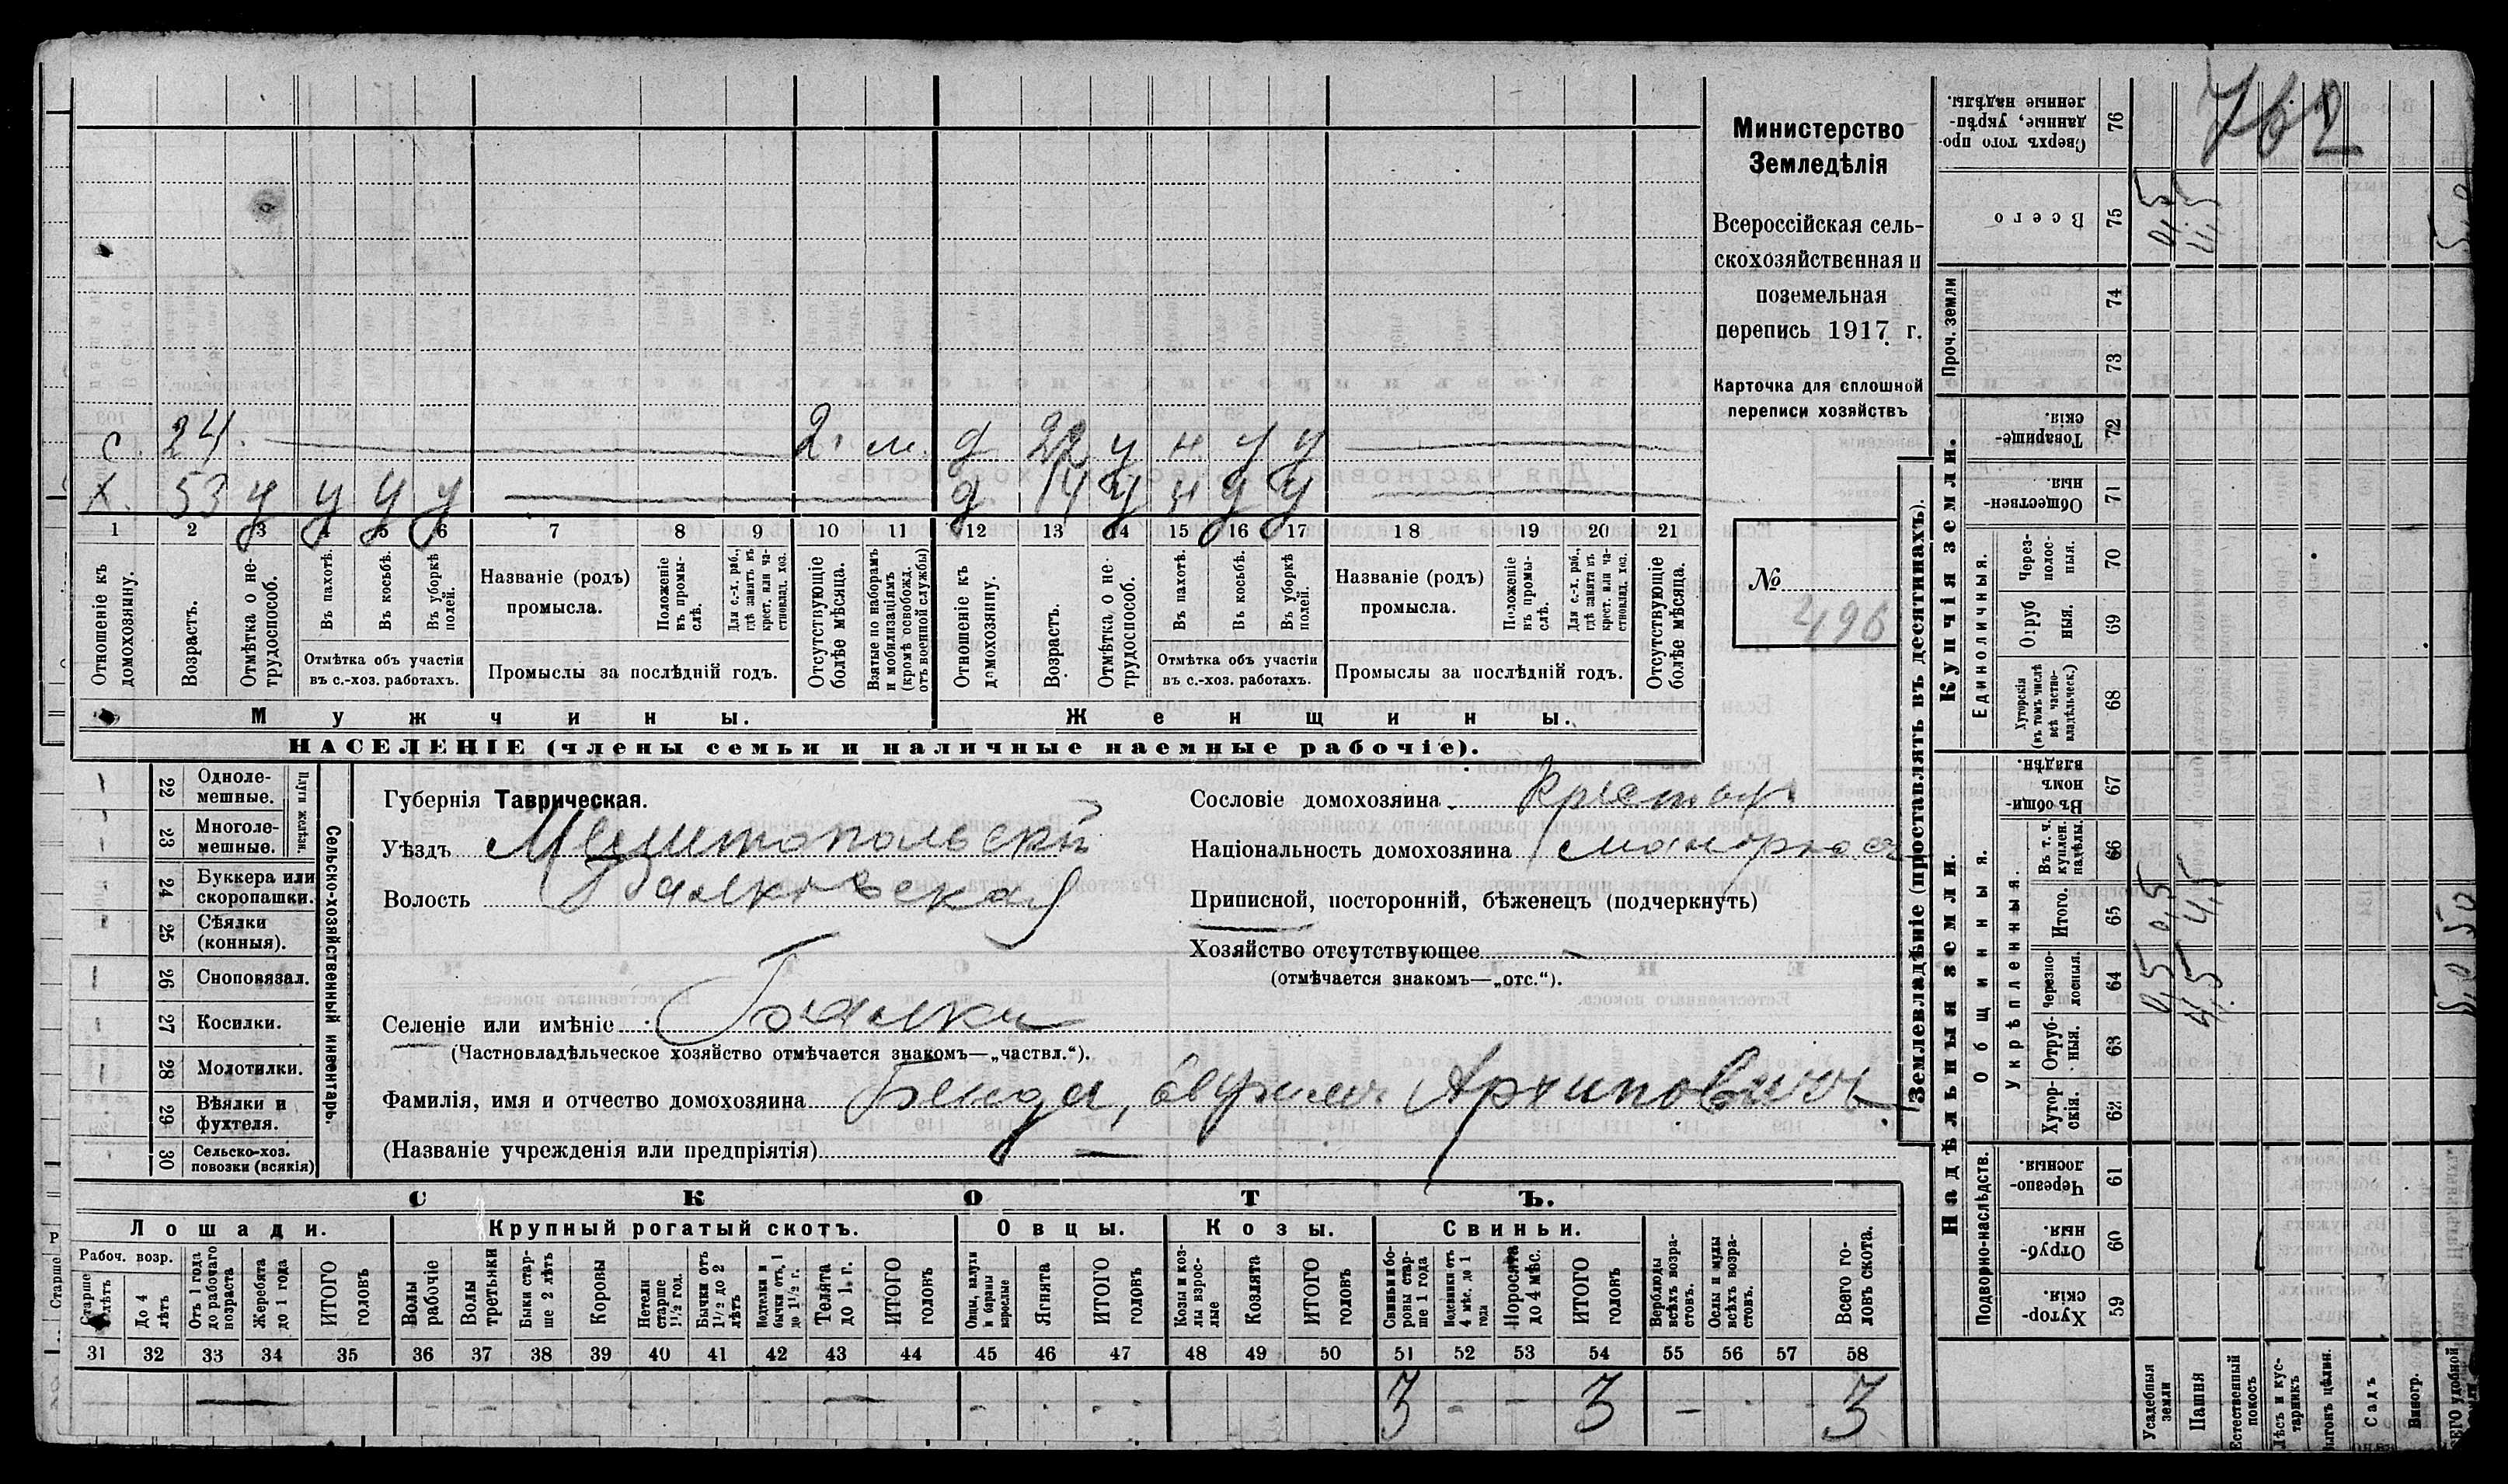 762
Министерство
Земледѣлія
Всероссійская сель-
скохозяйственная и
поземельная
перепись 1917 г.
Карточка для сплошной
переписи хозяйствъ
№
496
с. 24. 2. м. д 22 у н у у
х. 53 у у у у д 14 у н у у
1 2 3 4 5 6 7 8 9 10 11 12 13 14 15 16 17 18 19 20 21
Отношеніе къ домохозяину.
Возрастъ.
Отмѣтка о не-трудоспособ.
Въ пахотѣ.
Въ косьбѣ.
Въ уборкѣ полей.
Отмѣтка объ участіи
въ с.-хоз. работахъ.
Названіе (родъ)
промысла.
Положеніе въ промы-слѣ.
Для с.-х. раб., гдѣ занятъ въ крест. или ча-стновлад. хоз.
Промыслы за послѣдній годъ.
Отсутствующіе болѣе мѣсяца.
Взятые по наборамъ и мобилизаціямъ (кромѣ освобожд. отъ военной службы)
Отношеніе къ домохозяину.
Возрастъ.
Отмѣтка о не-трудоспособ.
Въ пахотѣ.
Въ косьбѣ.
Въ уборкѣ полей.
Отмѣтка объ участіи
въ с.-хоз. работахъ.
Названіе (родъ)
промысла.
Положеніе въ промы-слѣ.
Для с.-х. раб., гдѣ занята въ крест. или ча-стновлад. хоз.
Промыслы за послѣдній годъ.
Отсутствующіе болѣе мѣсяца.
Мужчины.
Женщины.
НАСЕЛЕНІЕ (члены семьи и наличные наемные рабочіе).
22 Одноле-мешные.
23 Многоле-мешные.
Плуги желѣзн.
24 Буккера или скоропашки.
25 Сѣялки (конныя).
26 Сноповязал.
27 Косилки.
28 Молотилки.
29 Вѣялки и фухтеля.
30 Сельско-хоз. повозки (всякія)
Сельско-хозяйственный инвентарь.
Губернія Таврическая.
Уѣздъ Мелитопольскій
Волость Балковская
Сословіе домохозяина
Національность домохозяина малоросс
Приписной, посторонній, бѣженецъ (подчеркнуть)
Хозяйство отсутствующее
(отмѣчается знакомъ—„отс.“).
Селеніе или имѣніе Балки
(Частновладѣльческое хозяйство отмѣчается знакомъ—„частвл.“).
Фамилія, имя и отчество домохозяина Бенда, Архиповичъ
(Названіе учрежденія или предпріятія)
СКОТЪ.
Лошади. Крупный рогатый скотъ. Овцы. Козы. Свиньи.
Рабоч. возр.
Старше лѣтъ
До 4 лѣтъ
Отъ 1 года до рабочаго возраста
Жеребята до 1 года
ИТОГО головъ
Волы рабочіе
Волы третьяки
Быки стар-ше 2 лѣтъ
Коровы
Нетели старше 1½ год.
Бычки отъ 1½ до 2 лѣтъ
Подтелки и бычки отъ 1 до 1½ г.
Телята до 1 г.
ИТОГО головъ
Овцы, валухи и бараны взрослые
Ягнята
ИТОГО головъ
Козы и коз-лы взрос-лые
Козлята
ИТОГО головъ
Свиньи и бо-ровы стар-ше 1 года
Подсвинки отъ 4 мѣс. до 1 года
Поросята до 4 мѣс.
ИТОГО головъ
Верблюды всѣхъ возра-стовъ.
Ослы и мулы всѣхъ возра-стовъ.
Всего го-ловъ скота.
31 32 33 34 35 36 37 38 39 40 41 42 43 44 45 46 47 48 49 50 51 52 53 54 55 56 57 58
3 3 3
Землевладѣніе (проставлять въ десятинахъ).
Надѣльныя земли.
Купчія земли.
Проч. земли
Подворно-наслѣдств.
Общинныя.
Укрѣпленныя.
Единоличныя.
Хутор-скія. 59
Отруб-ныя. 60
Черезпо-лосныя. 61
Хутор-скія. 62
Отруб-ныя. 63
Черезпо-лосныя. 64 0,5 4,5 5,0
Итого. 65 0,5 4,5 5,0
Въ т. ч. куплен. надѣлы. 66
Въ общи-номъ владѣн. 67
Хуторскія (въ томъ числѣ всѣ частно-владѣльческ.) 68
Отруб ныя. 69
Через-полос-ныя. 70
Обществен-ныя 71
Товарище-скія. 72
73
74
Всего 75 0,5 4,5 5,0
Сверхъ того про-данные, укрѣп-ленные надѣлы. 76
Усадебныя земли
Пашня
Естественный покосъ
Лѣсъ и кус-тарникъ
Выгонъ цѣлин.
Садъ
Виногр.